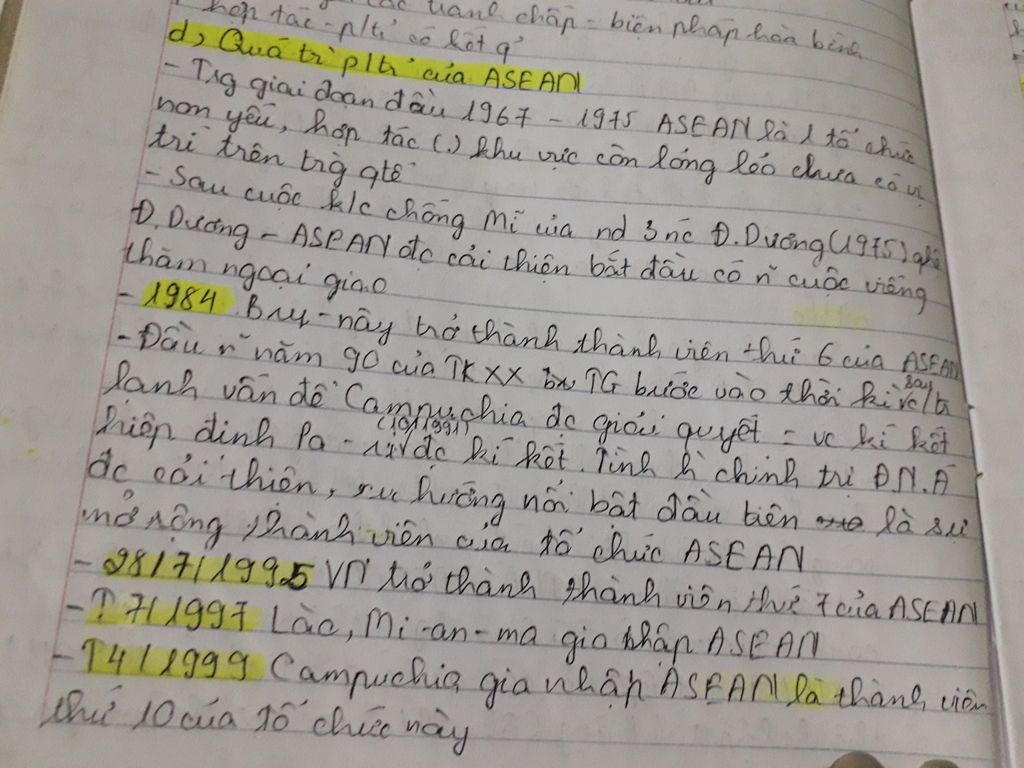 hợp tác - p/tr' có kết q'
các tranh chấp = biện pháp hòa bình
d, Quá tr' p/tr' của ASEAN
- Trg giai đoạn đầu 1967 - 1975 ASEAN là 1 tổ chức
non yếu, hợp tác (.) khu vực còn lỏng lẻo chưa có vị
trí trên trg qtế
- Sau cuộc k/c chống Mĩ của nd 3 nc Đ.Dương (1975) qhệ
Đ.Dương - ASEAN đc cải thiện bắt đầu có n~ cuộc viếng
thăm ngoại giao
- 1984 Bru-nây trở thành thành viên thứ 6 của ASEAN
- Đầu n~ năm 90 của TK XX TG bước vào thời kì sau c/tr
lạnh vấn đề Campuchia đc giải quyết = vc kí kết
hiệp định Pa-ri (10/1991) đc kí kết. Tình h` chính trị Đ.N.Á
đc cải thiện, xu hướng nổi bật đầu tiên là sự
mở rộng thành viên của tổ chức ASEAN
- 28/7/1995 VN trở thành thành viên thứ 7 của ASEAN
- T7/1997 Lào, Mi-an-ma gia nhập ASEAN
- T4/1999 Campuchia gia nhập ASEAN là thành viên
thứ 10 của tổ chức này